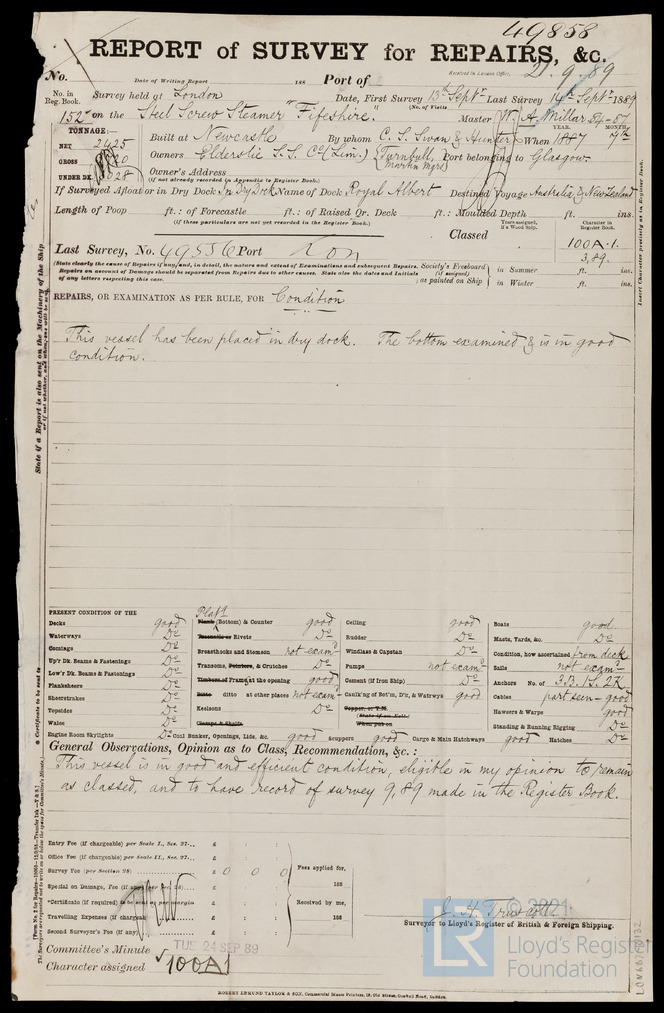 49858
REPORT of SURVEY for REPAIRS, &c.
No. Date of Writing Report 188 Port of Received in London Office, 21.9.89
No. in Reg. Book. Survey held at London Date, First Survey 13th Septr Last Survey 14th Septr 1889
(No. of Visits )
152 on the Steel Screw Steamer "Fifeshire." Master W. A. Millar 84-87
TONNAGE:— YEAR. MONTH.
NET 2425 Built at Newcastle By whom C. S. Swan & Hunter When 1887
GROSS Owners Elderslie S.S. Co (Lim.) (Turnbull, Martin Mgrs) Port belonging to Glasgow
UNDER DK. Owner's Address
(if not already recorded in Appendix to Register Book.)
If Surveyed Afloat or in Dry Dock In Dry Dock Name of Dock Royal Albert Destined Voyage Australia & New Zealand
Length of Poop ft.: of Forecastle ft.: of Raised Qr. Deck ft.: Moulded Depth ft. ins.
(if these particulars are not yet recorded in the Register Book.)
Years assigned, if a Wood Ship. Character in Register Book.
Classed 100A.1.
3,89.
Last Survey, No. 49536 Port Lon
(State clearly the cause of Repairs if any, and, in detail, the nature and extent of Examinations and subsequent Repairs.
Repairs on account of Damage should be separated from Repairs due to other causes. State also the dates and initials
of any letters respecting this case.
Society's Freeboard (if assigned) as painted on Ship in Summer ft. ins.
in Winter ft. ins.
REPAIRS, OR EXAMINATION AS PER RULE, FOR Condition
This vessel has been placed in dry dock. The bottom examined & is in good
condition.
PRESENT CONDITION OF THE
Decks good
Waterways Do
Comings Do
Up'r Dk. Beams & Fastenings Do
Low'r Dk. Beams & Fastenings Do
Planksheers Do
Sheerstrakes Do
Topsides Do
Wales Do
Engine Room Skylights Do
Plank (Bottom) & Counter good
Treenails or Rivets Do
Breasthooks and Stemson not examd
Transoms, Pointers, & Crutches Do
Timbers of Frame at the opening good
Ditto ditto at other places not examd
Keelsons Do
Clamps & Shelfs
Coal Bunker, Openings, Lids, &c. good
Scuppers good
Ceiling good
Rudder Do
Windlass & Capstan Do
Pumps not examd
Cement (if Iron Ship) Do
Caulk'ng of Bot'm, D'k, & Watrways good
Cargo & Main Hatchways good
Boats good
Masts, Yards, &c. Do
Condition, how ascertained from deck
Sails not examd
Anchors No. of 3.B. 1.S. 2K
Cables part seen - good
Hawsers & Warps good
Standing & Running Rigging Do
Hatches Do
General Observations, Opinion as to Class, Recommendation, &c.:
This vessel is in good and efficient condition, eligible in my opinion to remain
as classed, and to have record of survey 9,89 made in the Register Book.
Entry Fee (if chargeable) per Scale I., Sec. 27... £ : :
Office Fee (if chargeable) per Scale II., Sec. 27... £ : :
Survey Fee (per Section 28) £ 0 0 0
Special on Damage, Fee (if any) £ : :
*Certificate (if required) to be sent as per margin £ : :
Travelling Expenses (if chargeable) £ : :
Second Surveyor's Fee (if any) £ : :
Fees applied for, 188
Received by me, 188
Surveyor to Lloyd's Register of British & Foreign Shipping.
Committee's Minute TUE 24 SEP 89
Character assigned 100A1
© 2021
LR Lloyd's Register
Foundation
ROBERT EDMUND TAYLOR & SON, Commercial Steam Printers, 19, Old Street, Goswell Road, London.